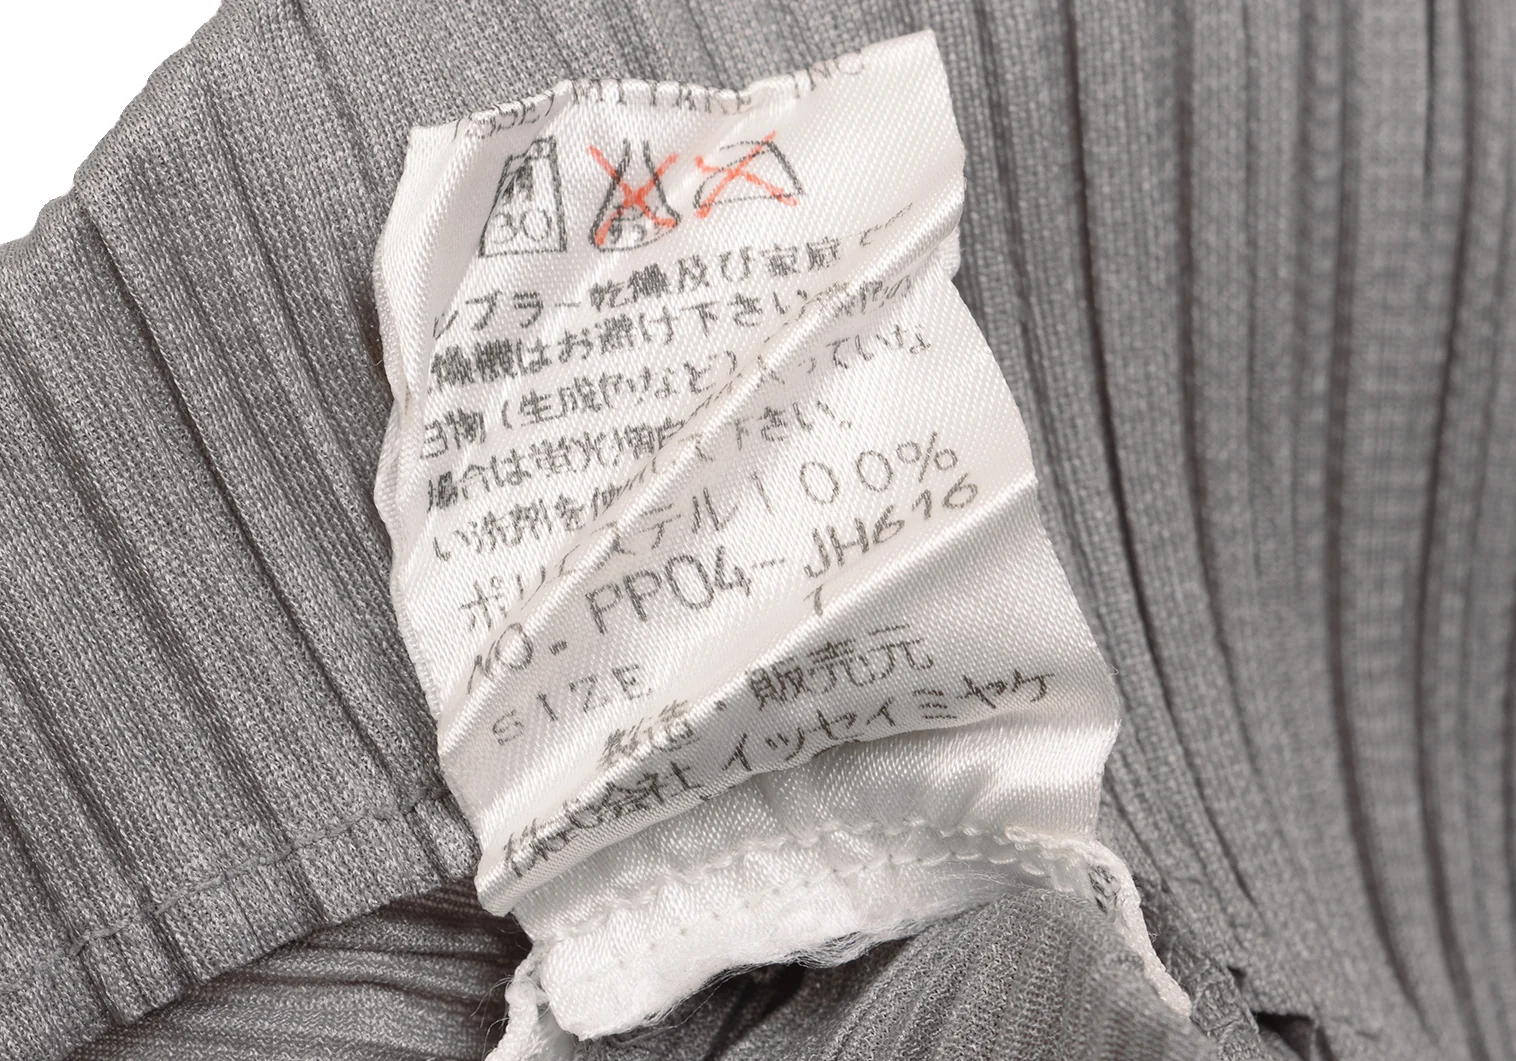 ISSEY MIYAKE INC
30
ンブラー乾燥及び家庭
燥機はお避け下さい
物(生成りなど)に入っていな
場合は蛍光増白 下さい。
い洗剤を使
ポリエステル100%
NO-PP04-JH616
SIZE
製造・販売元
株式会社イッセイミヤケ